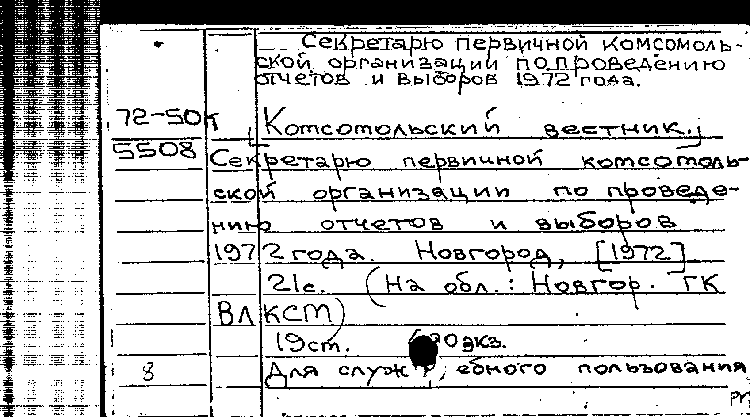 Секретарю первичной комсомоль-
ской организации по проведению
отчетов и выборов 1972 года.
72-50к
Комсомольский вестник.
5508 Секретарю первичной комсомоль-
ской организации по проведе-
нию отчетов и выборов
1972 года. Новгород, [1972]
21с. (На обл.: Новгор. ГК
ВЛКСМ)
19ст. экз.
8 Для служебного пользования